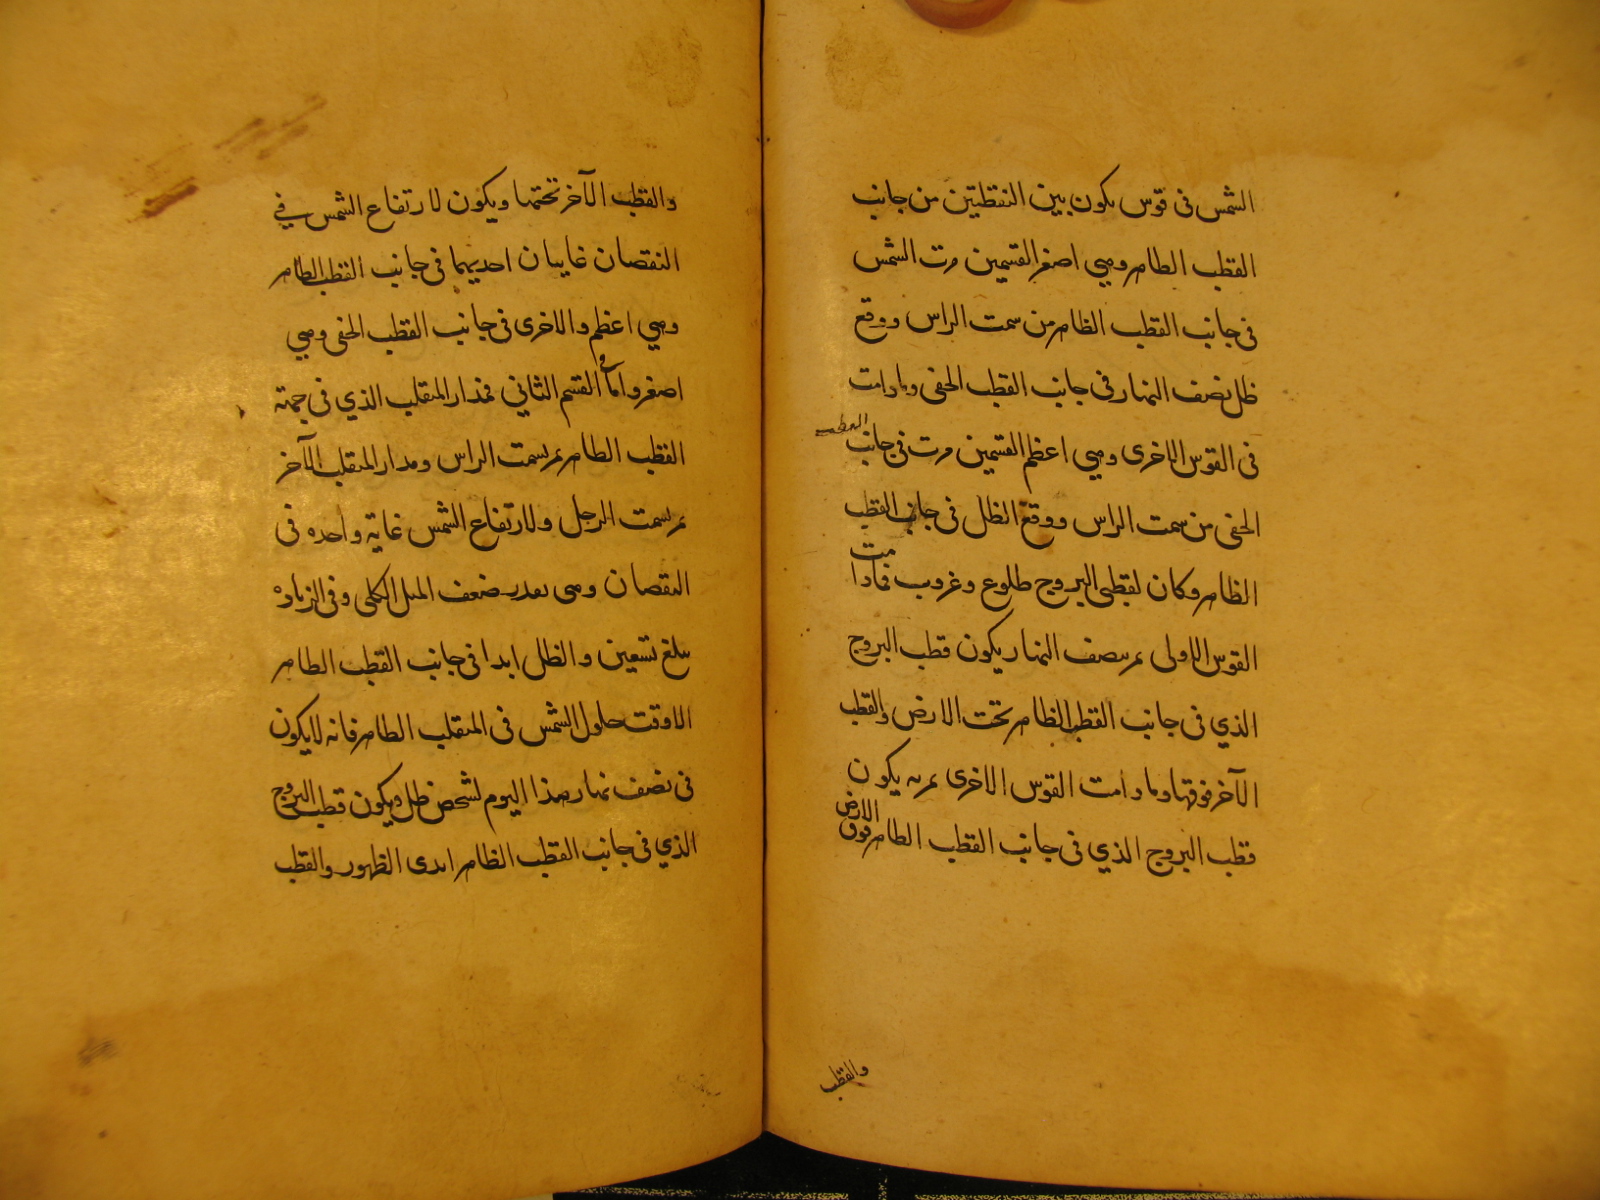 الشمس في قوس يكون بين النقطتين من جانب
القطب الظاهر وهي اصغر القسمين مرت الشمس
في جانب القطب الظاهر من سمت الراس ووقع
ظل نصف النهار في جانب القطب الخفي وما دامت
في القوس الاخرى وهي اعظم القسمين مرت في جانب القطب
الخفي من سمت الراس ووقع الظل في جانب القطب
الظاهر وكان لقطبي البروج طلوع وغروب فما دامت
القوس الاولى يمر بنصف النهار يكون قطب البروج
الذي في جانب القطب الظاهر تحت الارض والقطب
الآخر فوقها وما دامت القوس الاخرى يمر به يكون
قطب البروج الذي في جانب القطب الظاهر فوق الارض
والقطب
والقطب الآخر تحتها ويكون لارتفاع الشمس في
النقصان غايتان احديهما في جانب القطب الظاهر
وهي اعظم والاخرى في جانب القطب الخفي وهي
اصغر واما في القسم الثاني فمدار المنقلب الذي في جهة
القطب الظاهر يمر بسمت الراس ومدار المنقلب الآخر
يمر بسمت الرجل ولارتفاع الشمس غاية واحده في
النقصان وهي بقدر ضعف الميل الكلي وفي الزياده
يبلغ تسعين والظل ابدا في جانب القطب الظاهر
الا وقت حلول الشمس في المنقلب الظاهر فانه لا يكون
في نصف نهار هذا اليوم لشخص ظل ويكون قطب البروج
الذي في جانب القطب الظاهر ابدى الظهور والقطب